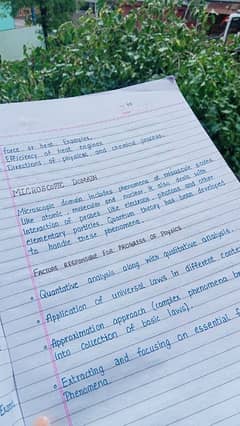 Force of heat. Examples.
Efficiency of heat engines
Directions of physical and chemical process.
MICROSCOPIC DOMAIN
Microscopic domain includes phenomena at minuscule scales
like atomic, molecular and nuclear. It also deals with
interaction of probes like electrons, photons and other
elementary particles. Quantum theory has been developed
to handle these phenomena.
FACTORS RESPONSIBLE FOR PROGRESS OF PHYSICS
• Quantative analysis along with qualitative analysis.
• Application of universal laws in different
• Approximation approach (complex phenomena
into collection of basic laws).
• Extracting and focusing on essential
Phenomena.